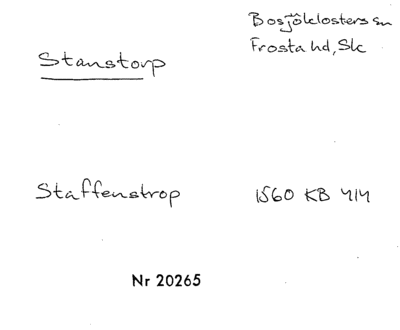 Bosjöklosters sn
Frosta hd, Sk
Stanstorp
Staffenstrop
1560 KB 414
Nr 20265